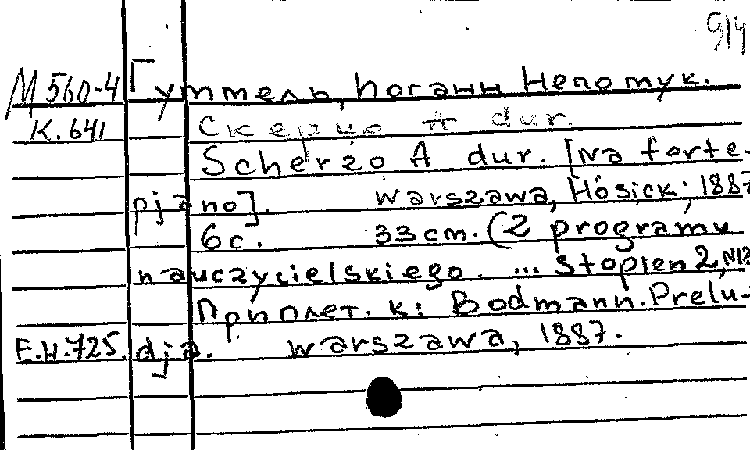 914
М 560-4 Гуммель, Иоганн Непомук.
К. 641 Скерцо A dur.
Scherzo A dur. [Na forte-
pjano]. Warszawa, Hösick, 1887
6 с. 33 см. (Z programu
nauczycielskiego. ... Stopien 2, N12
Приплет. к: Bodmann. Prelu-
Е.Н.725. dja. Warszawa, 1887.